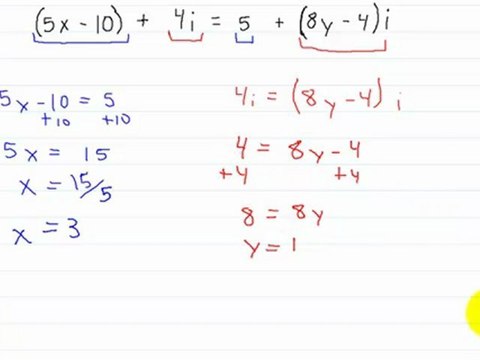 (5x - 10) + 4i = 5 + (8y - 4)i
5x - 10 = 5
+10 +10
5x = 15
x = 15/5
x = 3
4i = (8y - 4) i
4 = 8y - 4
+4 +4
8 = 8y
y = 1